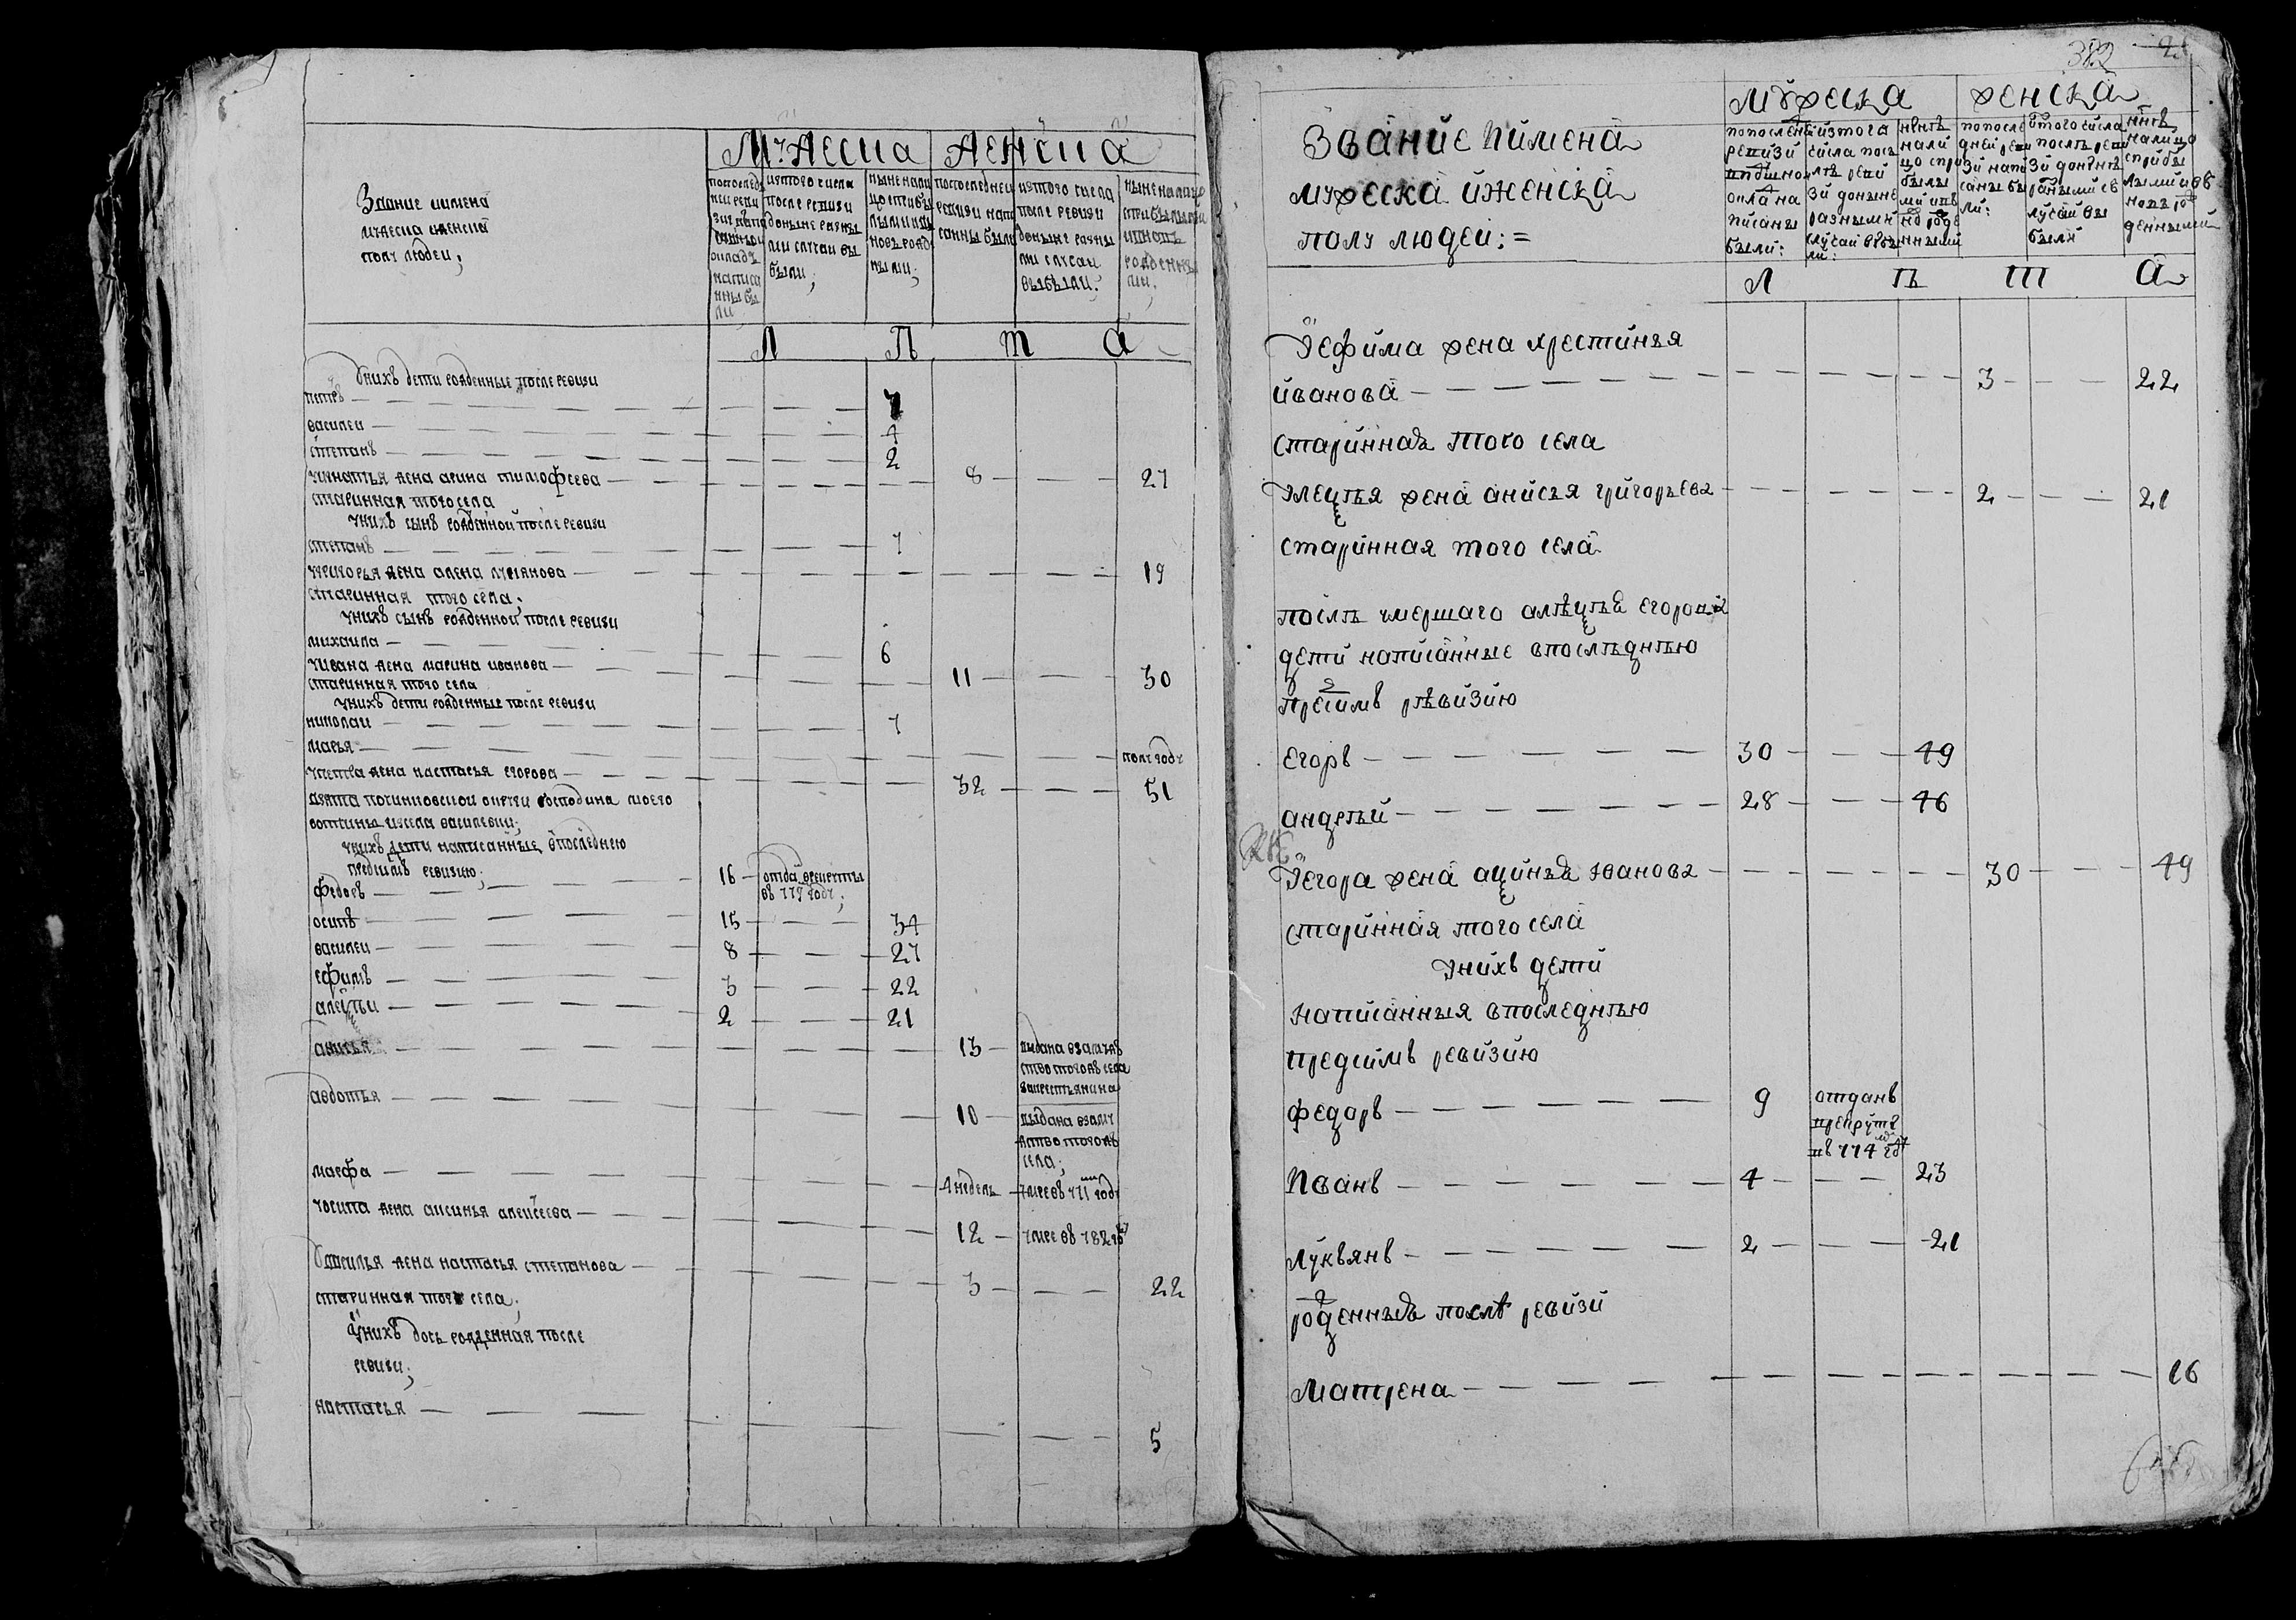 Звание иимена
мужеска иженска
полу людеи;
Мужеска Женска
попоследнеи ревизии вподушномъ окладѣ написанны были
изтого числа после ревизи доныне разными случаи выбыли;
ныне налицо сприбылыми иновъ рожденными;
попоследнеи ревизи написанны были
изтого числа после ревизи доныне разными случаи выбыли;
ныне налицо сприбылыми иновь рожденными;
Л Ѣ т а
Унихъ дети рожденные после ревизи
петръ 7
василеи 4
степанъ 2
жена арина тимофеева 8 27
старинная того села
унихъ сынъ рожденной после ревизи
степанъ 7
Угригорья жена алена лукіянова 19
старинная того села;
унихъ сынъ рожденной после ревизи
михаила 6
Уивана жена марина иванова 11 30
старинная того села
унихъ дети рожденные после ревизи
николаи 7
марья полугоду
Упетра жена настасья егорова 32 51
взята починковской округи господина моего
вотчины изсела василевки;
унихъ дети написанные впоследнею
предъсимъ ревизию;
федоръ 16 отданъ врекруты въ 779 году;
осипъ 15 34
василеи 8 27
ефимъ 3 22
алеѯѣи 2 21
анисья 13 выдана взамужство тогожъ села закрестьянина
авдотья 10 выдана взамужство тогожъ села;
марфа 4 недель умре въ году
Уосипа жена аксинья алеѯеева 12 умре въ 782 году
Увасилья жена настасья степанова 3 22
старинная того села;
Унихъ дочь рожденная после
ревизи;
настасья 5
382
Звание иимена
мужеска иженска
полу людеи:=
мужеска женска
попоследнеи ревизи вподушномъ окладѣ написаны были:
изтого числа послѣ ревизи доныне разными случаи выбыли:
ненѣ налицо сприбылыми ивновь рожденными
попоследнеи ревизи написаны были:
изтого числа послѣ ревизи донынѣ разными случаи выбыли
ненѣ налицо сприбылыми ивновъ рожденными
Л ѣ т а
Уефима жена крестинья
иванова 3 22
стариннаѧ того села
Уалеѯѣя жена анисья григорьева 2 21
старинная того села
послѣ умершаго алѣѯѣѧ егорова
дети написанные впослѣднѣю
пресимъ рѣвизию
Егоръ 30 49
андрѣй 28 46
Уегора жена аѯинья иванова 30 49
старинная того села
Унихъ дети
написанныя впоследнѣю
предсимъ ревизию
федоръ 9 отданъ врекруты въ 774 году
Иванъ 4 23
Лукьянъ 2 21
рожденныѧ послѣ ревизи
Матрена 16